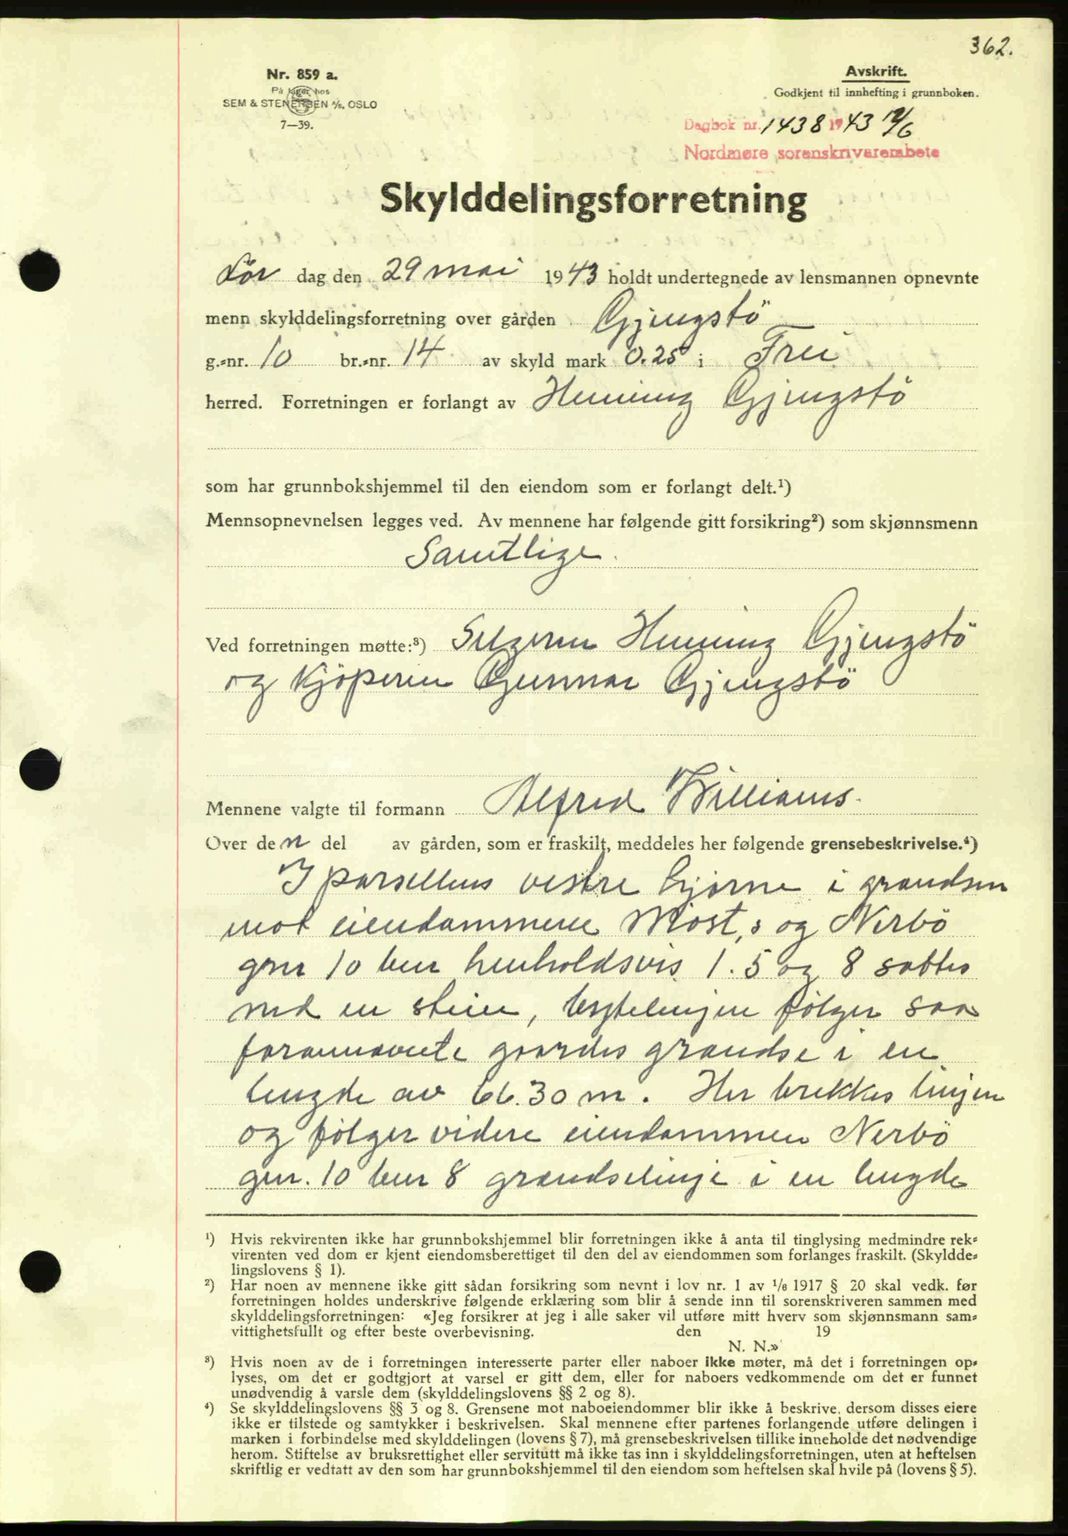 362.
Nr. 859 a.
På lager hos
SEM & STENERSEN A/S, OSLO
7—39.
Avskrift.
Godkjent til innhefting i grunnboken.
Dagbok nr. 1438 1943 12/6
Nordmøre sorenskrivarembete
Skylddelingsforretning
Lør dag den 29 mai 1943 holdt undertegnede av lensmannen opnevnte
menn skylddelingsforretning over gården Gjengstö
g.-nr. 10 br.-nr. 14 av skyld mark 0.25 i Frei
herred. Forretningen er forlangt av Henning Gjengstö
som har grunnbokshjemmel til den eiendom som er forlangt delt.¹)
Mennsopnevnelsen legges ved. Av mennene har følgende gitt forsikring²) som skjønnsmenn
Samtlige.
Ved forretningen møtte:³) Selgeren Henning Gjengstö
og Kjöperen Gunnar Gjengstö
Mennene valgte til formann Alfred Williams.
Over den del av gården, som er fraskilt, meddeles her følgende grensebeskrivelse.⁴)
I parsellens vestre hjörne i grændsen
mot eiendammene Most, s og Nerbö
gnr 10 bnr henholdsvis 1. 5 og 8 sattes
ned en stein, bytelinjen fölger saa
forannævnte gaardes grændse i en
lengde av 66.30 m. Her brekkes linjen
og fölger videre eiendammen Nerbö
gnr. 10 bnr 8 grændselinje i en lengde
¹) Hvis rekvirenten ikke har grunnbokshjemmel blir forretningen ikke å anta til tinglysing medmindre rek-
virenten ved dom er kjent eiendomsberettiget til den del av eiendommen som forlanges fraskilt. (Skyldde-
lingslovens § 1).
²) Har noen av mennene ikke gitt sådan forsikring som nevnt i lov nr. 1 av 1/6 1917 § 20 skal vedk. før
forretningen holdes underskrive følgende erklæring som blir å sende inn til sorenskriveren sammen med
skylddelingsforretningen: «Jeg forsikrer at jeg i alle saker vil utføre mitt hverv som skjønnsmann sam-
vittighetsfullt og efter beste overbevisning. den 19
N. N.»
³) Hvis noen av de i forretningen interesserte parter eller naboer ikke møter, må det i forretningen op-
lyses, om det er godtgjort at varsel er gitt dem, eller for naboers vedkommende om det er funnet
unødvendig å varsle dem (skylddelingslovens §§ 2 og 8).
⁴) Se skylddelingslovens §§ 3 og 8. Grensene mot naboeiendommer blir ikke å beskrive, dersom disses eiere
ikke er tilstede og samtykker i beskrivelsen. Skal mennene efter partenes forlangende utføre delingen i
marken i forbindelse med skylddelingen (lovens § 7), må grensebeskrivelsen tillike inneholde det nødvendige
herom. Stiftelse av bruksrettighet eller servitutt må ikke tas inn i skylddelingsforretningen, uten at heftelsen
skriftlig er vedtatt av den som har grunnbokshjemmel til den eiendom som heftelsen skal hvile på (lovens § 5).